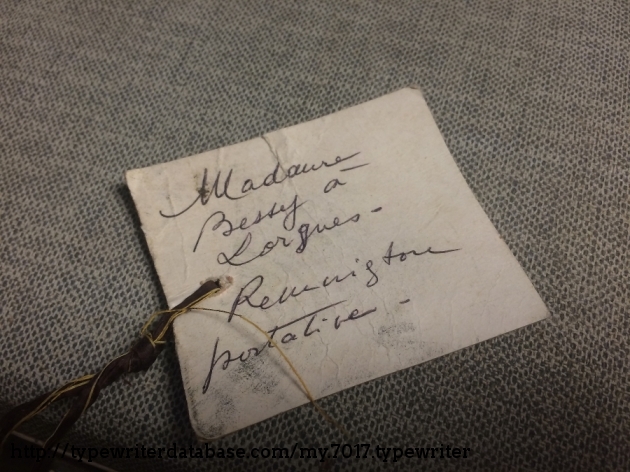 Madame
Bessy à
Lorgues -
Remington
portative -
http://typewriterdatabase.com/my.7017.typewriter